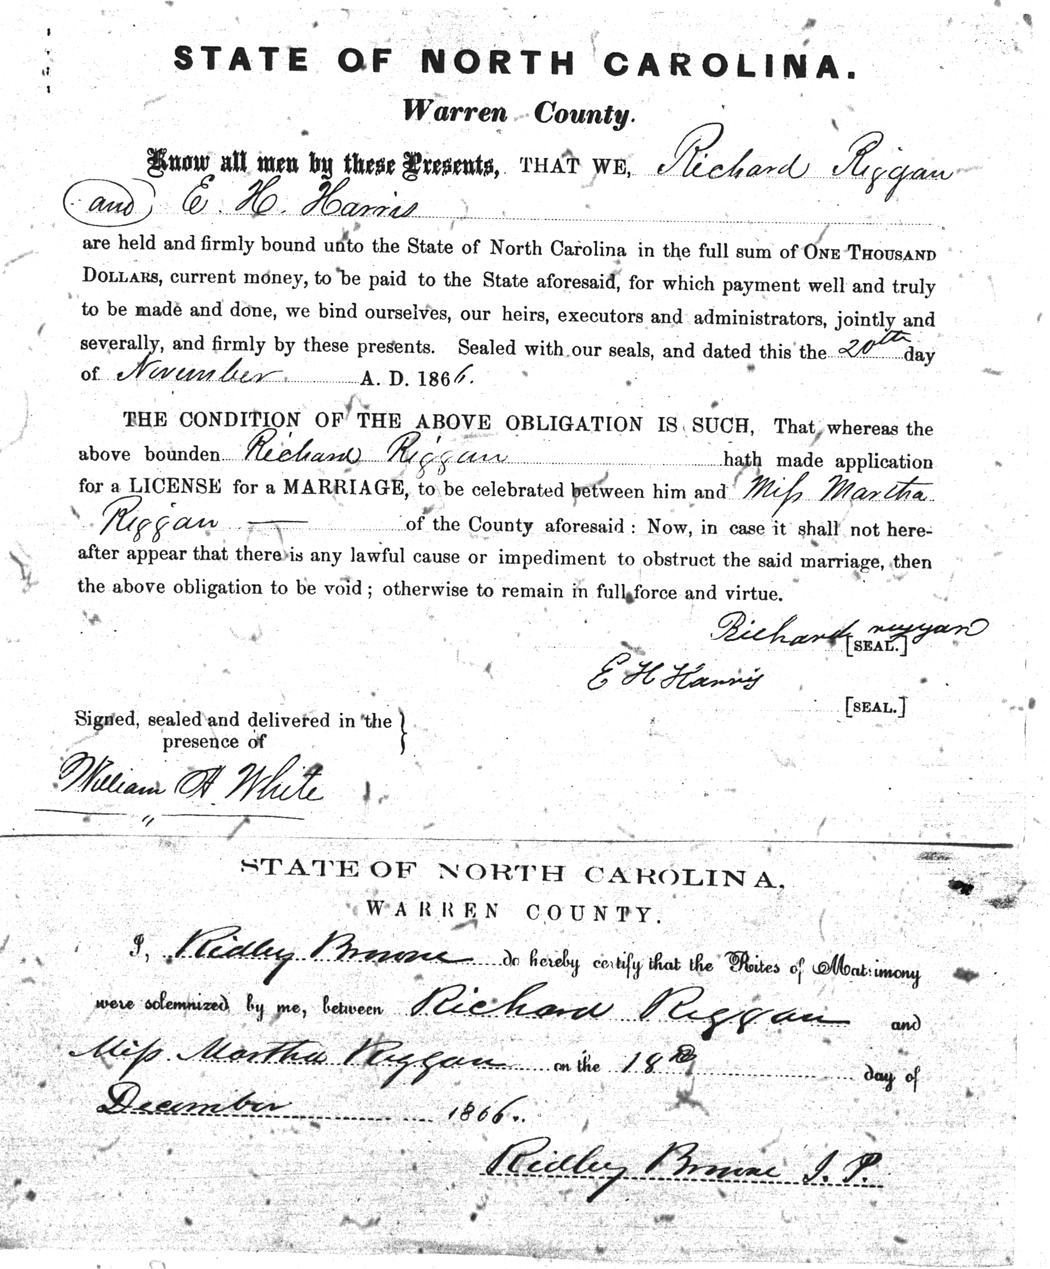 STATE OF NORTH CAROLINA.
Warren County.
Know all men by these Presents, THAT WE, Richard Riggan
and E. H. Harris
are held and firmly bound unto the State of North Carolina in the full sum of ONE THOUSAND
DOLLARS, current money, to be paid to the State aforesaid, for which payment well and truly
to be made and done, we bind ourselves, our heirs, executors and administrators, jointly and
severally, and firmly by these presents. Sealed with our seals, and dated this the 20th day
of November A. D. 1866.
THE CONDITION OF THE ABOVE OBLIGATION IS SUCH, That whereas the
above bounden Richard Riggan hath made application
for a LICENSE for a MARRIAGE, to be celebrated between him and Miss Martha
Riggan — of the County aforesaid: Now, in case it shall not here-
after appear that there is any lawful cause or impediment to obstruct the said marriage, then
the above obligation to be void; otherwise to remain in full force and virtue.
Richard riggan
[SEAL.]
E H Harris
[SEAL.]
Signed, sealed and delivered in the
presence of
William A. White
"
STATE OF NORTH CAROLINA,
WARREN COUNTY.
I, Ridley Browne do hereby certify that the Rites of Matrimony
were solemnized by me, between Richard Riggan and
Miss Martha Riggan on the 18th day of
December 1866.
Ridley Browne J. P.